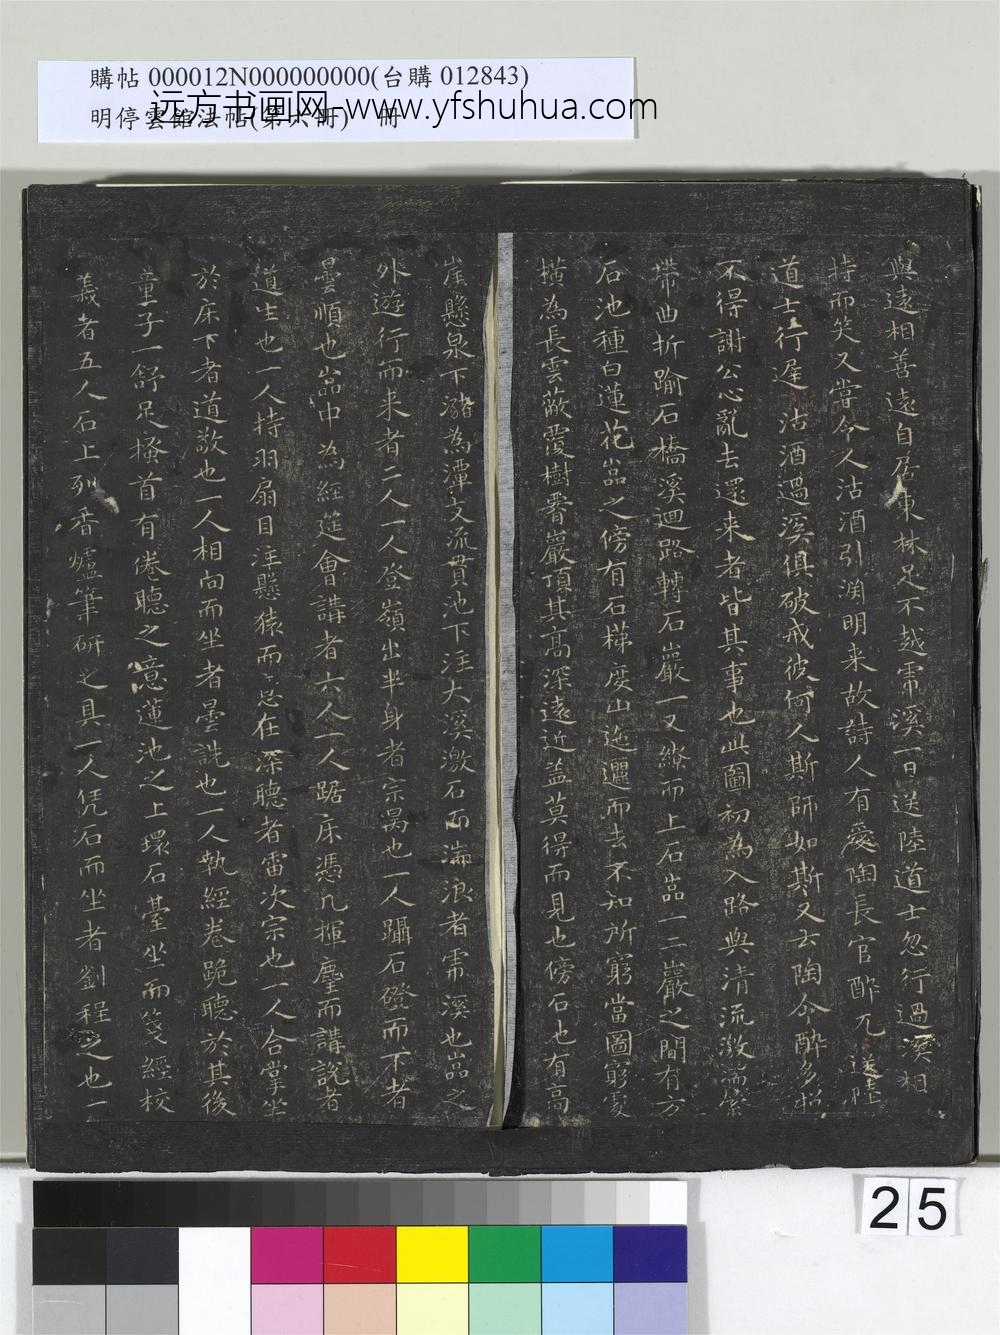 購帖 000012N000000000(台購 012843)
明停雲館法帖(第六冊) 冊
远方书画网-www.yfshuhua.com
與遠相善遠自居東林足不越帍溪一日送陸道士忽行過溪相
持而笑又當令人沽酒引渊明来故詩人有愛陶長官醉兀〻送陸
道士行遲〻沽酒過溪俱破戒彼何人斯師如斯又云陶令醉多招
不得謝公心亂去還来者皆其事也此圖初為入路與清流激湍縈
帶曲折踰石橋溪迴路轉石巖一又繚而上石嵓一二巖之間有方
石池種白蓮花嵓之傍有石梯度山迤邐而去不知所窮當圖窮處
横為長雲蔽覆樹臀巖頂其高深遠近盖莫得而見也傍石也有高
崖懸泉下瀦為潭支流貫池下注大溪激石而湍浪者帍溪也嵓之
外遊行而来者二人一人登嶺出半身者宗昺也一人躡石磴而下者
曇順也嵓中為經筵會講者六人一人踞床憑几揮麈而講說者
道生也一人持羽扇目注懸猿而意在深聽者雷次宗也一人合掌坐
於床下者道敬也一人相向而坐者曇詵也一人執經卷跪聽於其後
童子一舒足搔首有倦聽之意蓮池之上環石臺坐而箋經校
義者五人石上列香爐筆研之具一人凭石而坐者劉程之也一
25